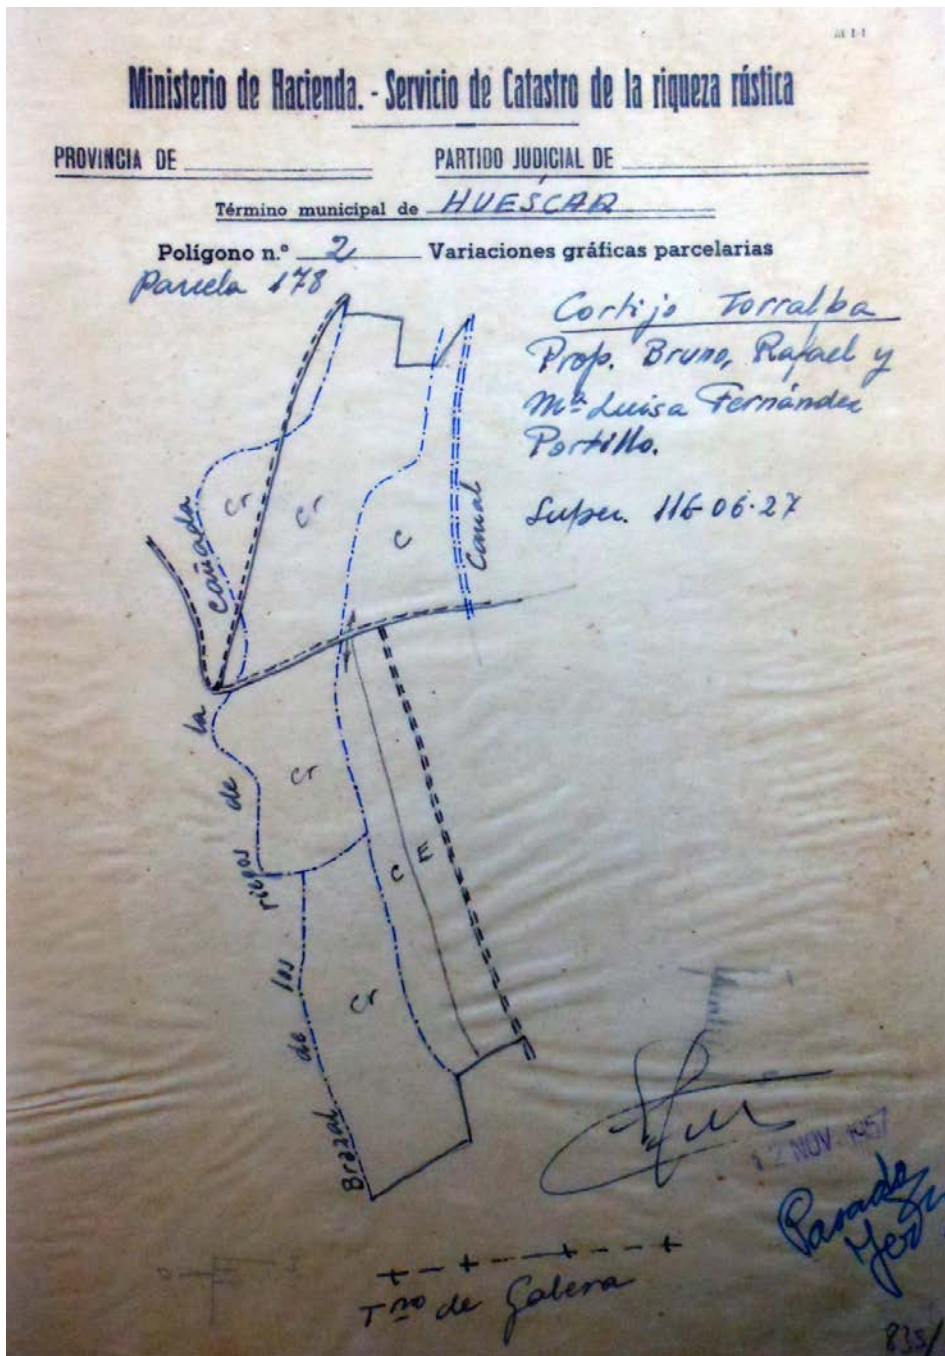 Ministerio de Hacienda. - Servicio de Catastro de la riqueza rústica
PROVINCIA DE
PARTIDO JUDICIAL DE
Término municipal de HUÉSCAR
Polígono n.º 2 Variaciones gráficas parcelarias
Parcela 178
Cortijo Torralba
Prop. Bruno, Rafael y
Mª Luisa Fernández
Portillo.
Super. 116-06-27
Cr
Cr
C
Canal
Cr
C
E
Cr
Brazal de los riegos de la cañada
12 NOV. 1957
Tno de Galera
835/